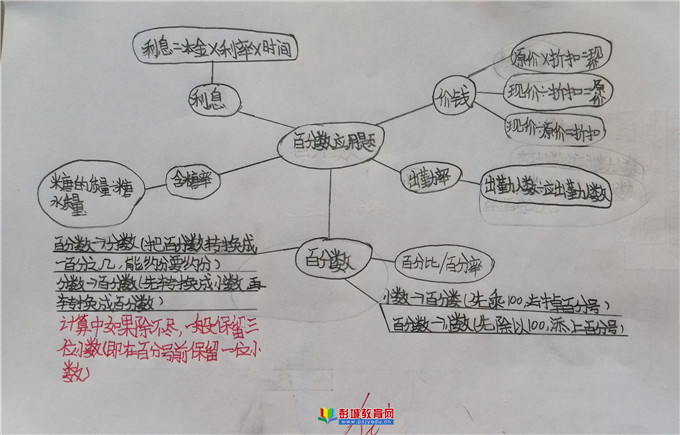 利息=本金×利率×时间
利息
原价×折扣=现价
价钱
现价÷折扣=原价
现价÷原价=折扣
百分数应用题
糖的质量÷糖
水质量
含糖率
出勤率
出勤人数÷应出勤人数
百分数→分数(把百分数转换成
一百分之几,能约分要约分)
分数→百分数(先转换成小数,再
转换成百分数)
计算中如果除不尽,一般保留三
位小数(即在百分号前保留一位小
数)
百分数
百分比/百分率
小数→百分数(先乘100,去掉百分号)
百分数→小数(先除以100,添上百分号)
彭城教育网
www.pcjyedu.cn